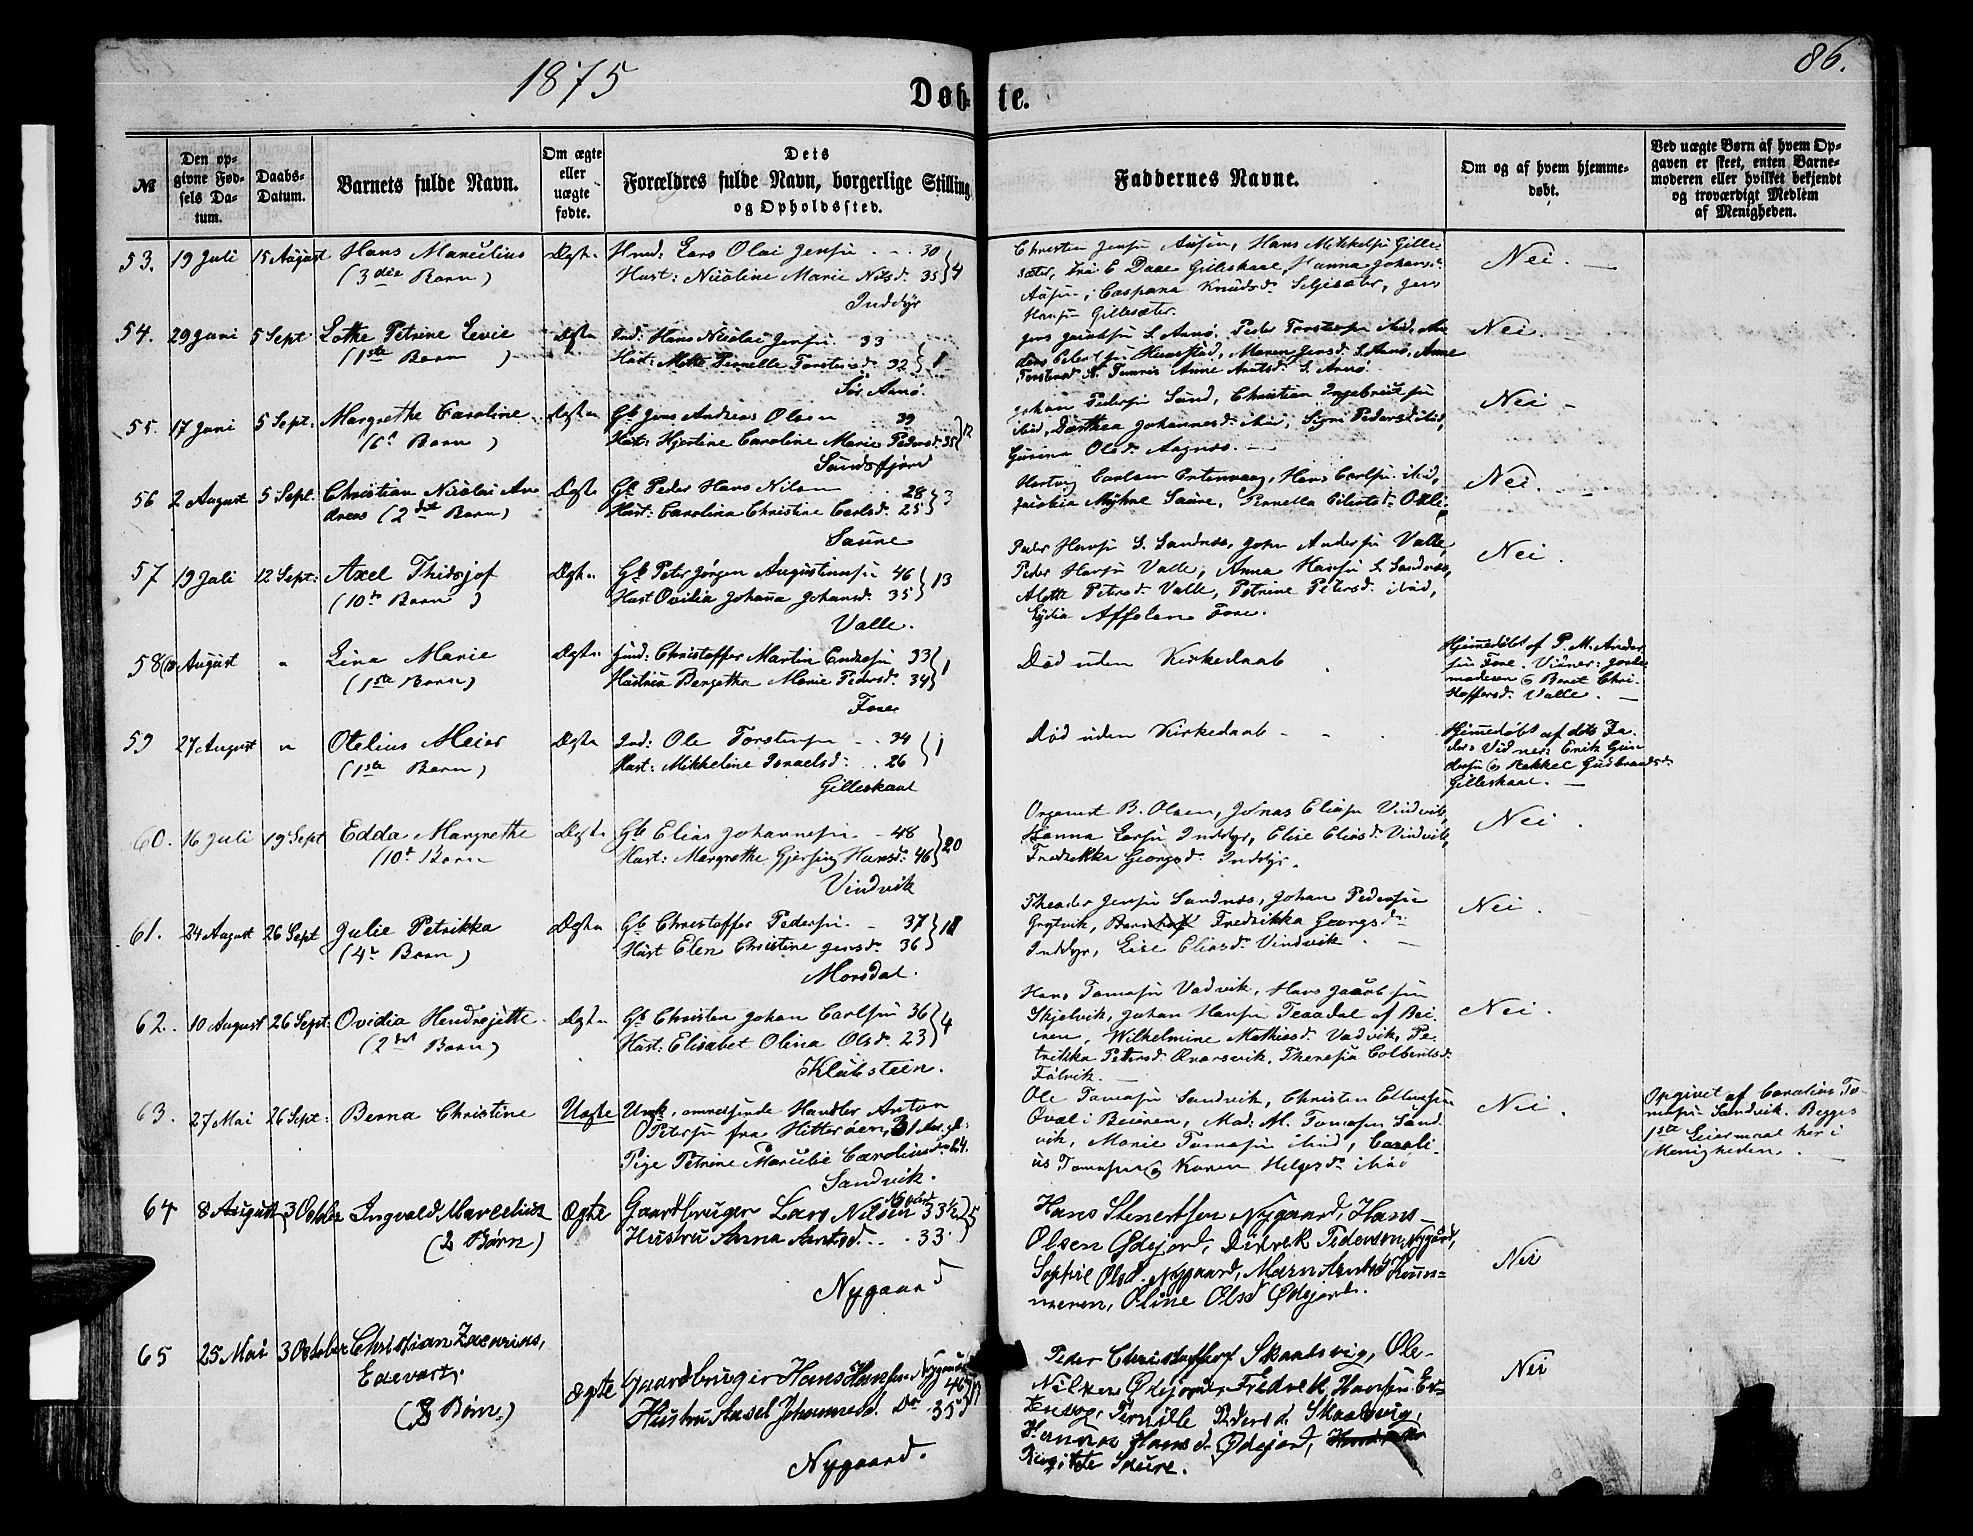 1875
86.
Døb- te.
№
Den op-
givne Fød-
sels Da-
tum.
Daabs-
Datum.
Barnets fulde Navn.
Om ægte
eller
uægte
fødte.
Dets
Forældres fulde Navn, borgerlige Stilling
og Opholdssted.
Faddernes Navne.
Om og af hvem hjemme-
døbt.
Ved uægte Børn af hvem Op-
gaven er skeet, enten Barne-
moderen eller hvilket bekjendt
og troværdigt Medlem
af Menigheden.
53. 19 Juli 15 August Hans Marcelius
(3die Barn)
Ægte
Hmd: Lars Olai Jensen 30
Hust: Nicoline Marie Nilsd. 35 } 4
Inddyr
Christen Jensen Aasen, Hans Mikkelsen Gille-
sæter, Fru E Daae Gilleskaal, Hanna Johansd.
Aasen, Caspara Knudsd. Seljesæter, Jens
Hansen Gillesæter.
Nei.
54. 29 Juni 5 Sept Lothe Petrine Levie
(1ste Barn)
Ægte
Ind: Hans Nicolai Jensen 33
Hust: Mette Pernelle Torstensd. 32 } 1
Sør Arnø.
Jens Jacobsen S. Arnø, Peder Torstensen ibid,
Maren Jensd. S. Arnø, Anne
Torstensd. Anne Arntsd. S. Arnø.
Nei.
55. 17 Juni 5 Sept: Margrethe Caroline
(6te Barn)
Ægte
Gb Jens Andreas Olsen 39
Hust: Hjertine Caroline Marie Pedersd. 35 } 12
Sundsfjord
Johan Pedersen Sund, Christian Ingebrigtsen
ibid, Dorthea Johannesd. ibid, Signe Pedersd. ibid,
Gurina Olsd. Aagnæs.
Nei
56 2 August 5 Sept. Christian Nicolai An-
dreas (2det Barn)
Ægte
Gb Peder Hans Nilsen 28
Hust: Carolina Christine Carlsd. 25 } 3
Saura
Hertvig Carlsen Ertenvaag, Hans Carlsen ibid,
Jacobia Myhre Saura, Pernella Eilertsd.
Nei
57 19 Juli 12 Sept: Axel Thidsjof
(10de Barn)
Ægte
Gb Peter Jørgen Augustinusen 46
Hust Ovilia Johana Johansd. 35 } 13
Valle.
Peder Hansen S. Sandnæs, John Andersen Valle,
Peder Hansen Valle, Anna Hansen S. Sandnæs,
Alette Petersd. Valle, Petrine Petersd. ibid,
Lydia Fore.
Nei
58 August " Lina Marie
(1ste Barn)
Ægte
Ind: Christoffer Martin Endresen 33
Hustru Bergetha Marie Pedersd. 34 } 1
Fore
Død uden Kirkedaab
Hjemmedøbt af P. M. Ander-
sen Fore. Vidner: Jorde-
moderen & Beret Chri-
stoffersd. Valle.
59 27 August " Otelius Meier
(1ste Barn)
Ægte
Ind: Ole Torstensen 34
Hust: Mikkeline Israelsd. 26 } 1
Gilleskaal
Død uden Kirkedaab
Hjemmedøbt af dets Fa-
der. Vidner: Erik Gun-
dersen & Rakkel Gudbrandsd.
Gilleskaal.
60. 16 Juli 19 Sept Edda Margrethe
(10de Barn
Ægte
Gb Elias Johannesen 48
Hust: Margrethe Gjersing Hansd. 46 } 20
Vindvik
Organist B. Olsen, Jonas Eliasen Vindvik,
Hanna Larsen Inddyr, Elise Eliasd. Vindvik,
Fredrikka Georgsd. Inddyr.
Nei
61. 24 August 26 Sept Julie Petrikka
(4de Barn)
Ægte
Gb Christoffer Pedersen 37
Hust Elen Christine Jensd. 36 } 11
Morsdal.
Theador Jensen Sandnæs, Johan Pedersen
Grytvik, Fredrikka Georgsd.
Inddyr, Lise Eliasd. Vindvik.
Nei
62. 10 August 26 Sept: Ovidia Hendrejette
(2det Barn)
Ægte
Gb Christen Johan Carlsen 36
Hust: Elisabet Olina Olsd. 23 } 4
Klubsteen.
Hans Tomasen Vadvik, Hans Jacobsen
Skjelvik, Johan Hansen af Bei-
eren, Wilhelmine Mathisd. Vadvik, Pe-
trikka Petersd. Qvarsvik, Theresia Colbentsd.
Falvik.
Nei
63. 27 Mai 26 Sept: Berna Christine
Uægte
Unk, omreisende Handler Anton
Petersen fra Hitterøen, 31 Aar gl.
Pige Petrine Marulie Caroliusd. 24.
Sandvik.
Ole Tomasen Sandvik, Christen Ellingsen
Øval i Beieren, Mad: M. Tomasen Sand-
vik, Marie Tomasen ibid, Caroli-
us Tomasen & Karen Helgesd. ibid
Nei.
Opgivet af Carolius To-
masen Sandvik. Begges
1ste Leiermaal her i
Menigheden.
64 8 August 3 October Ingvald Marcelius
(2 Børn)
Ægte
Gaardbruger Lars Nilsen 33½
Hustru Anna Arntsd. 33. } 5
Nygaard
Hans Stenertsen Nygaard, Hans
Olsen Ødejord, Didrik Pedersen Nygård,
Sophie Olsd. Nygaard, Maren Arntsd Kun-
neren, Oline Olsd Ødejord.
Nei
65 25 Mai 3 October Christian Zacarias,
Edevart
(8 Børn)
Ægte
Gaardbruger Hans Hansen 46
Hustru Assel Johannesd. 35
Nygaard.
Peder Christoffers Skaalsvig, Ole
Nilsen Ødejord, Fredrik Hansen
Pernille Peders d. Skaalsvig,
Hanna Hans d. Ødejord,
Birgitte Skure.
Nei